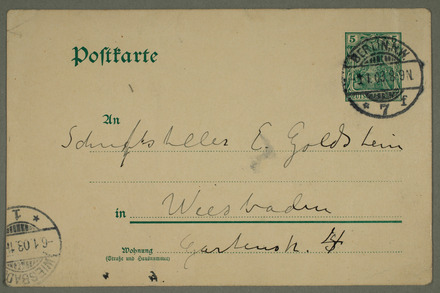 Postkarte
5
BERLIN.N.W.
5.1.03.8-9N.
* 7 f
An
Schriftsteller E. Goldstein
in Wiesbaden
Wohnung Gartenstr. 4
(Straße und Hausnummer)
WIESBAD
-6.1.03.
1 *